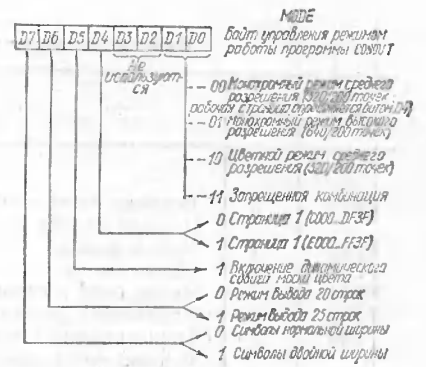 MODE
Байт управления режимом
работы программы CONOUT
D7 D6 D5 D4 D3 D2 D1 D0
Не
используют-
ся
00 Монохромный режим среднего
разрешения (320/200 точек
рабочая страница определяется битом D4)
01 Монохромный режим высокого
разрешения (640/200 точек)
10 Цветной режим среднего
разрешения (320/200 точек)
11 Запрещенная комбинация
0 Страница 1 (C000..DF3F)
1 Страница 1 (E000..FF3F)
1 Включение динамического
сдвига маски цвета
0 Режим вывода 20 строк
1 Режим вывода 25 строк
0 Символы нормальной ширины
1 Символы двойной ширины